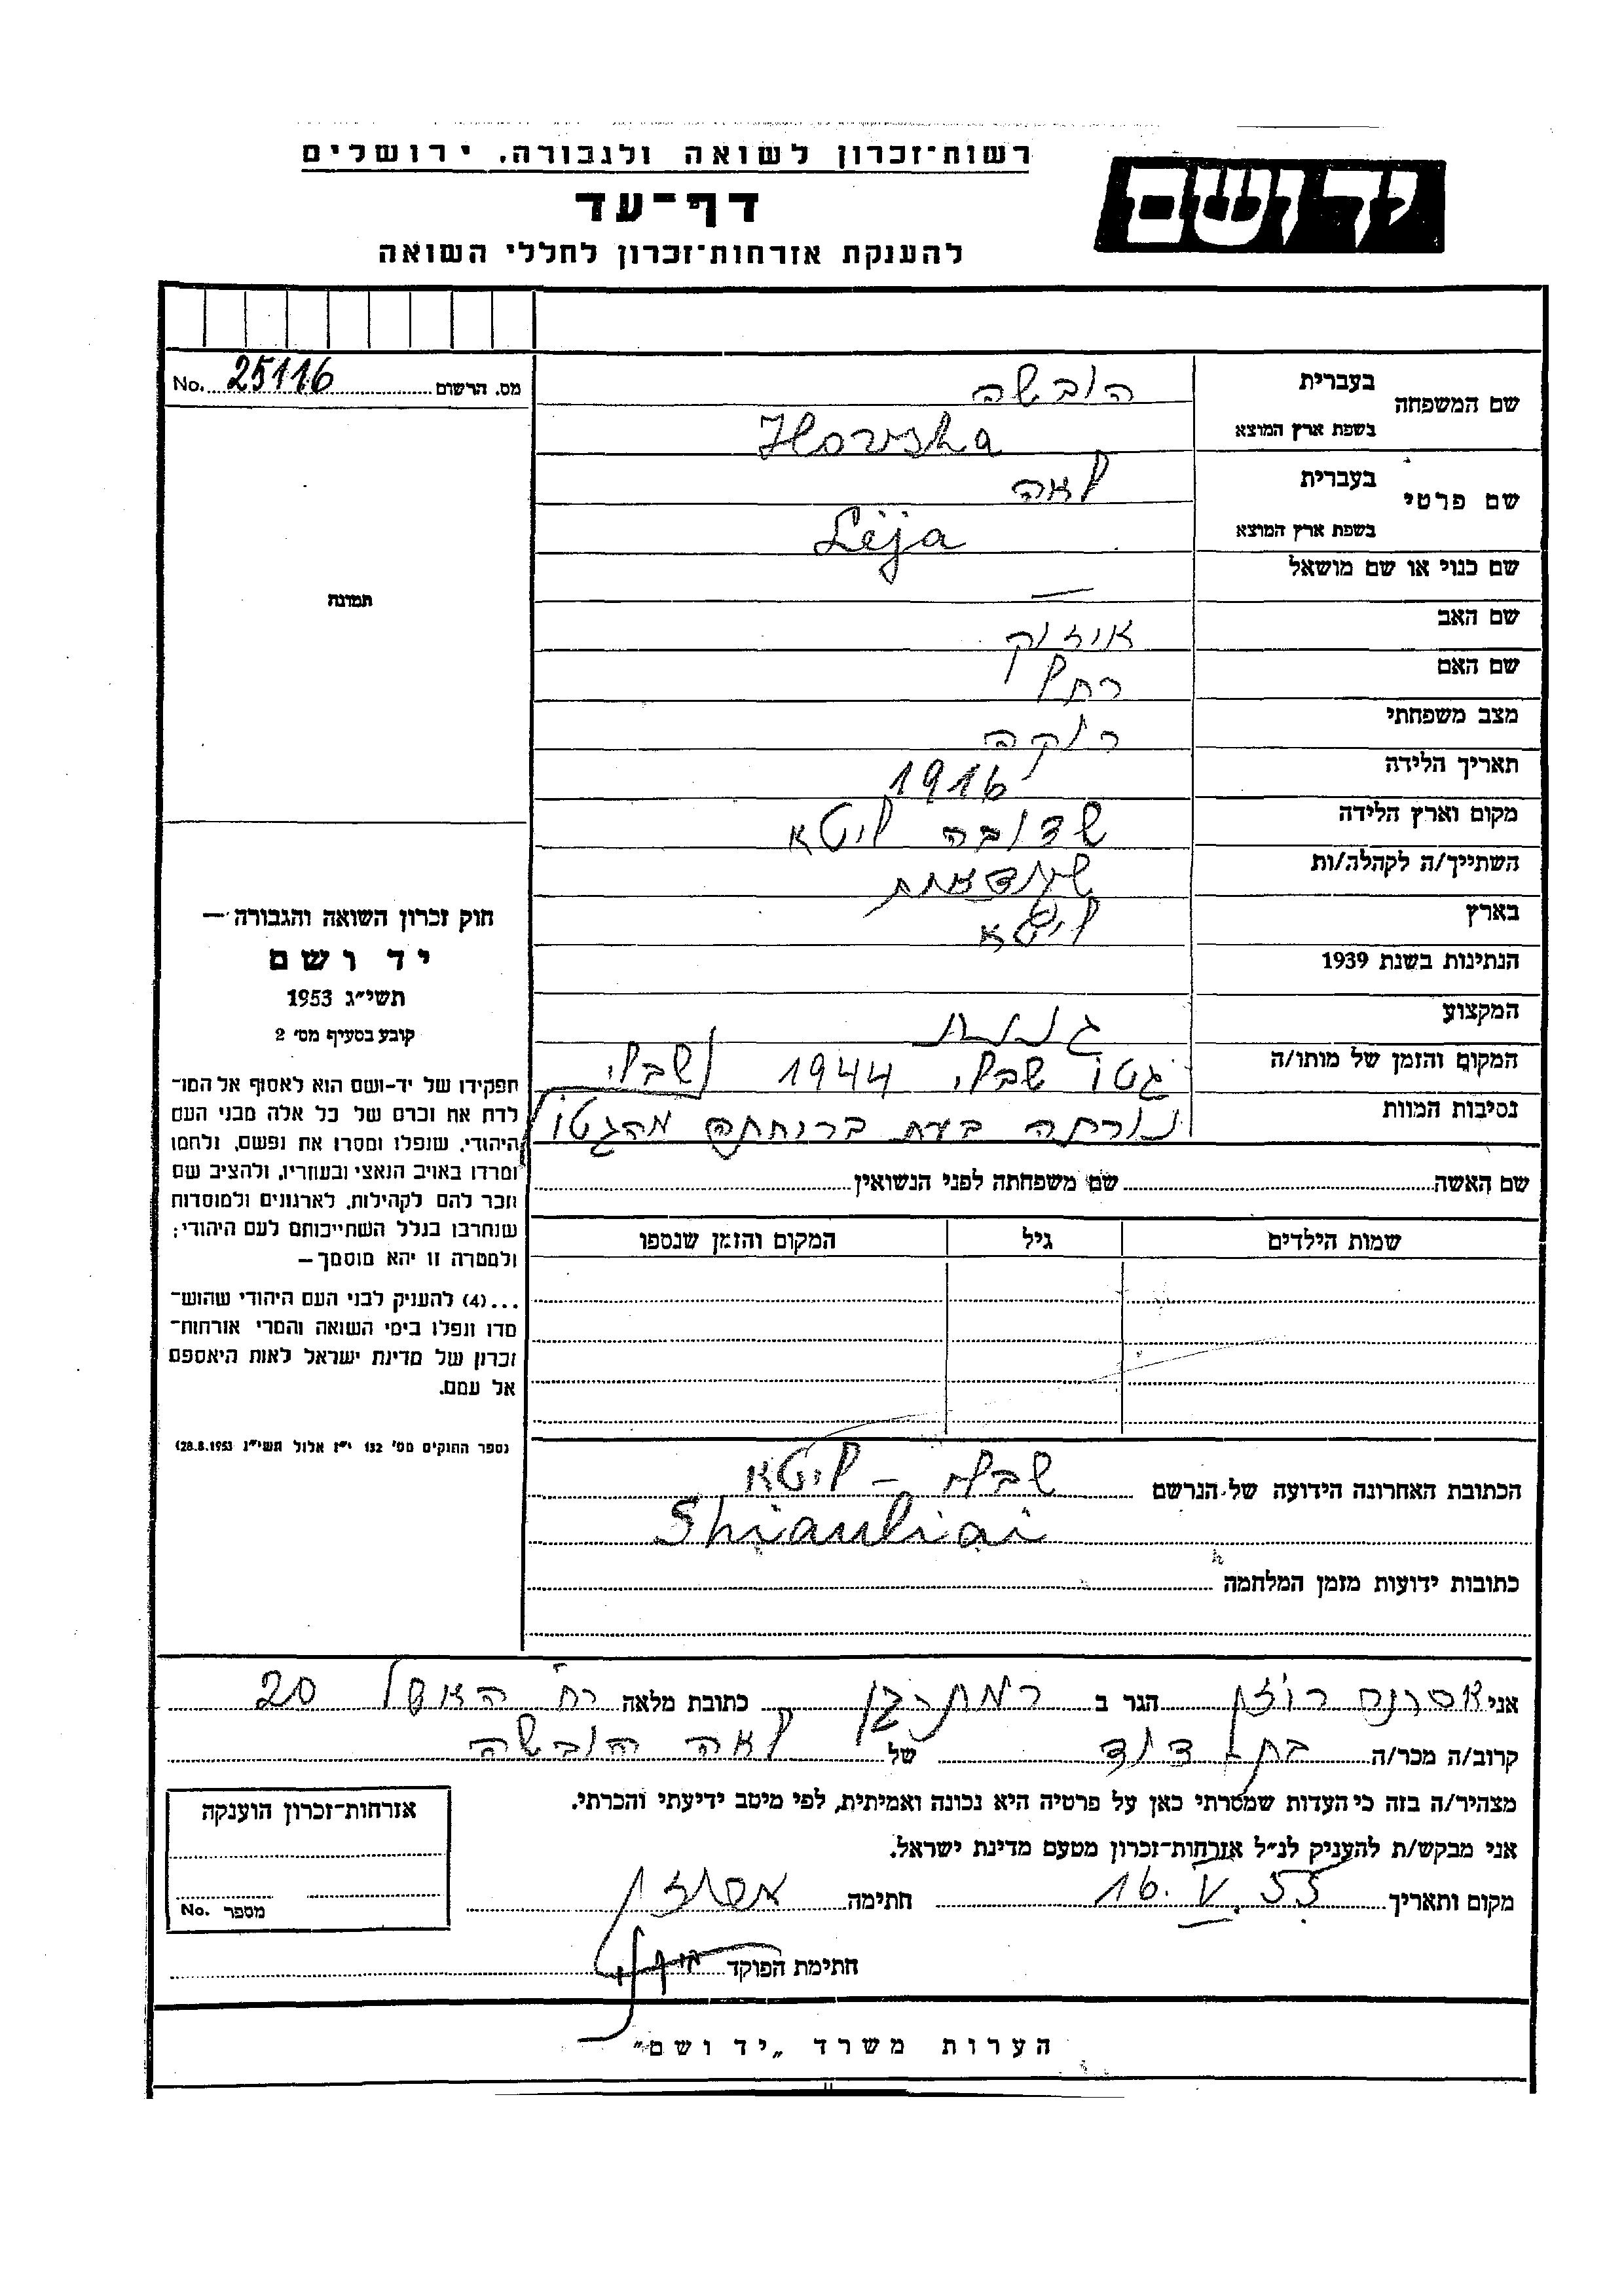 רשות־זכרון לשואה ולגבורה. ירושלים
יד ושם
דף־עד
להענקת אזרחות־זכרון לחללי השואה
No. 25116 מס. הרשום
שם המשפחה
בעברית הובשה
בשפת ארץ המוצא Hovsha
שם פרטי
בעברית לאה
בשפת ארץ המוצא Lëja
שם כנוי או שם מושאל —
שם האב איזיק
שם האם רחל
מצב משפחתי רוקה
תאריך הלידה 1916
מקום וארץ הלידה שדובה ליטא
השתייך/ה לקהלה/ות
בארץ ליטא
הנתינות בשנת 1939
המקצוע גננת
המקום והזמן של מותו/ה גטו שבלי 1944 שבלי
נסיבות המוות נורתה בעת בריחתה מהגטו
שם האשה שם משפחתה לפני הנשואין
שמות הילדים גיל המקום והזמן שנספו
הכתובת האחרונה הידועה של הנרשם שבלי – ליטא
Shiauliai
כתובות ידועות מזמן המלחמה
תמונה
חוק זכרון השואה והגבורה —
יד ושם
תשי״ג 1953
קובע בסעיף מס׳ 2
תפקידו של יד-ושם הוא לאסוף אל המו־
לדת את זכרם של כל אלה מבני העם
היהודי, שנפלו ומסרו את נפשם, נלחמו
ומרדו באויב הנאצי ובעוזריו, ולהציב שם
וזכר להם לקהילות, לארגונים ולמוסדות
שנחרבו בגלל השתייכותם לעם היהודי;
ולמטרה זו יהא מוסמך —
...(4) להעניק לבני העם היהודי שהוש־
מדו ונפלו בימי השואה והמרי אזרחות־
זכרון של מדינת ישראל לאות היאספם
אל עמם.
(ספר החוקים מס׳ 132 י״ז אלול תשי״ג 28.8.1953)
אני רוזן הגר ב רמת גן כתובת מלאה רח׳ האשל 20
קרוב/ה מכר/ה בת דוד של לאה הובשה
מצהיר/ה בזה כי העדות שמסרתי כאן על פרטיה היא נכונה ואמיתית, לפי מיטב ידיעתי והכרתי.
אני מבקש/ת להעניק לנ״ל אזרחות־זכרון מטעם מדינת ישראל.
מקום ותאריך 16. V. 55 חתימה
חתימת הפוקד
אזרחות־זכרון הוענקה
No. מספר
הערות משרד „יד ושם״